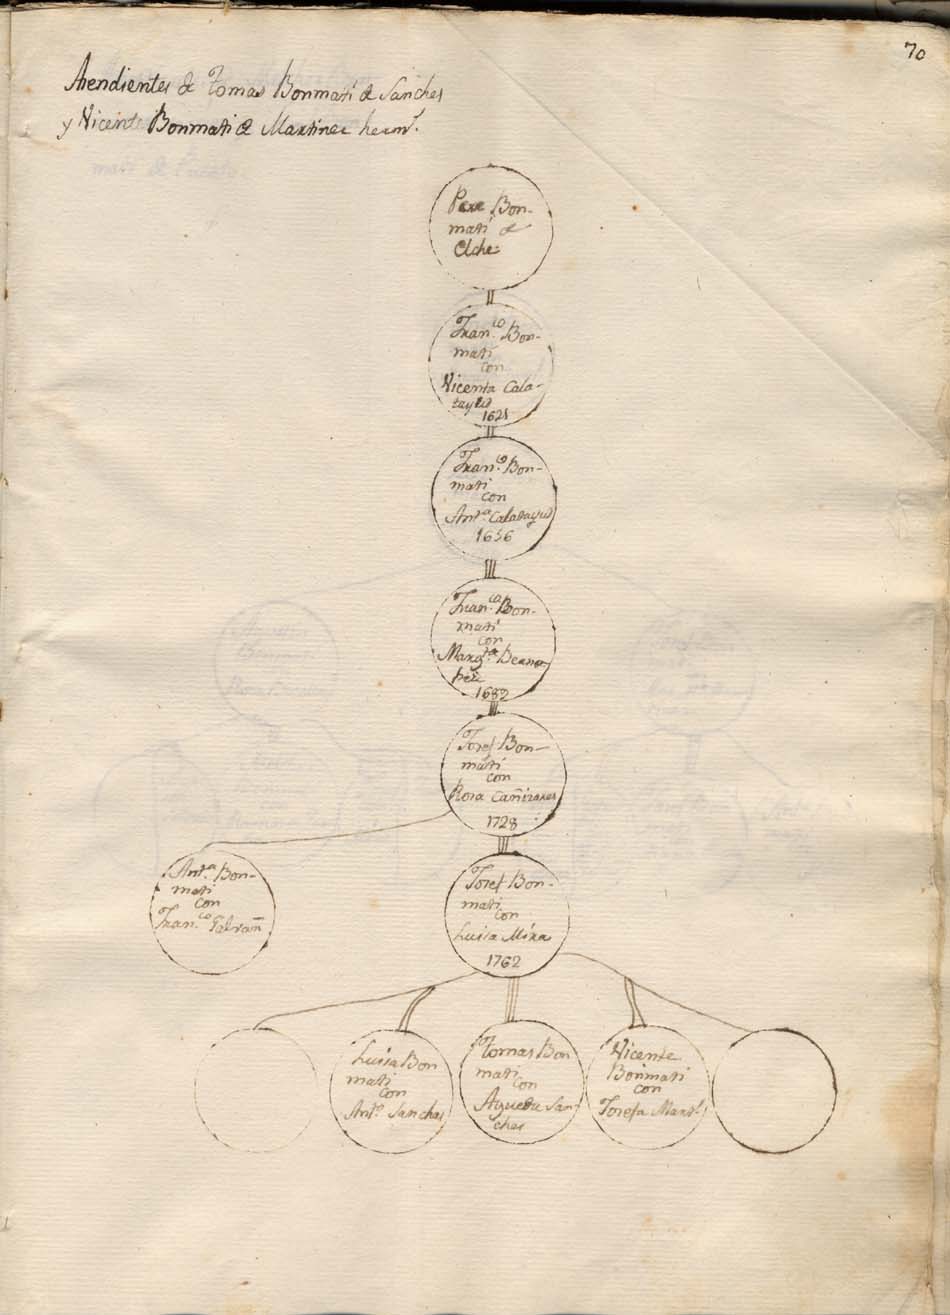 70
Asendientes de Tomas Bonmati de Sanches
y Vicente Bonmati de Martinez herms.
Pere Bon-
mati de
Elche
Franco. Bon-
mati
con
Vicenta Cala-
tayud
1621
Franco. Bon-
mati
con
Anta. Calatayud
1656
Franco. Bon-
mati
con
Margta.
1682
Josef Bon-
mati
con
Rosa Cañizares
1728
Anta. Bon-
mati
con
Franco. Galvañ
Josef Bon-
mati
con
Luisa Mira
1762
Luisa Bon
mati
con
Anto. Sanches
Tomas Bon
mati
con
Agueda San-
ches
Vicente
Bonmati
con
Josefa Marts.